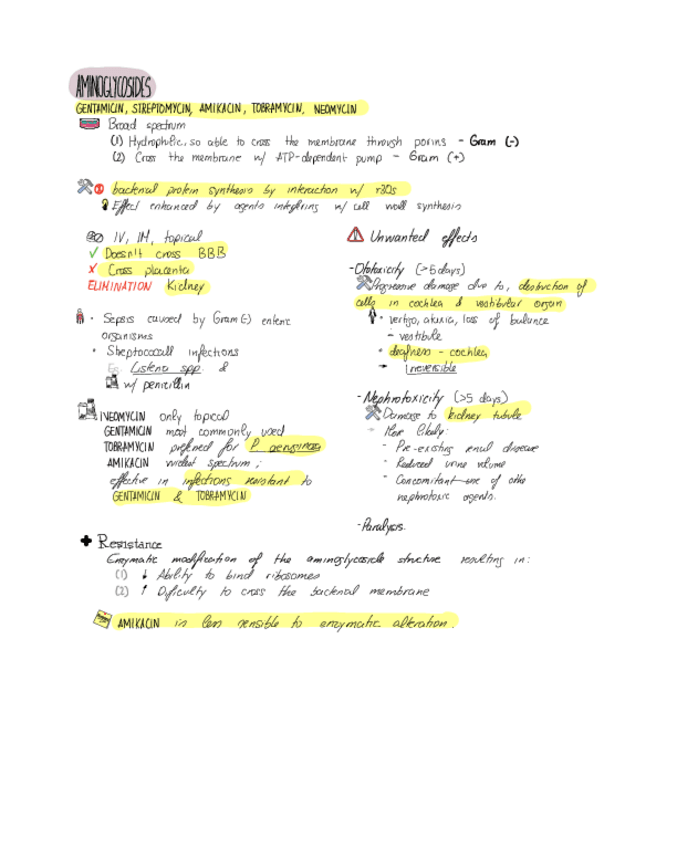 AMINOGLYCOSIDES
GENTAMICIN, STREPTOMYCIN, AMIKACIN, TOBRAMYCIN, NEOMYCIN
Broad spectrum
(1) Hydrophilic, so able to cross the membrane through porins - Gram (-)
(2) Cross the membrane w/ ATP-dependent pump - Gram (+)
bacterial protein synthesis by interaction w/ r30s
Effect enhanced by agents interfering w/ cell wall synthesis
IV, IM, topical
✓ Doesn't cross BBB
✗ Cross placenta
ELIMINATION Kidney
• Sepsis caused by Gram(-) enteric
organisms
• Streptococcall infections
Eg. Listeria spp. &
w/ penicillin
NEOMYCIN only topical
GENTAMICIN most commonly used
TOBRAMYCIN preferred for P. aeruginosa
AMIKACIN widest spectrum;
effective in infections resistant to
GENTAMICIN & TOBRAMYCIN
Unwanted effects
-Ototoxicity (>5 days)
Progressive damage due to, destruction of
cells in cochlea & vestibular organ
• vertigo, ataxia, loss of balance
- vestibule
• deafness - cochlea
→ Irreversible
-Nephrotoxicity (>5 days)
Damage to kidney tubule
→ More likely:
- Pre-existing renal disease
- Reduced urine volume
- Concomitant use of othe
nephrotoxic agents.
-Paralysis.
Resistance
Enzymatic modification of the aminoglycoside structure resulting in:
(1) ↓ Ability to bind ribosomes
(2) ↑ Dificulty to cross the bacterial membrane
AMIKACIN is less sensible to enzymatic alteration.